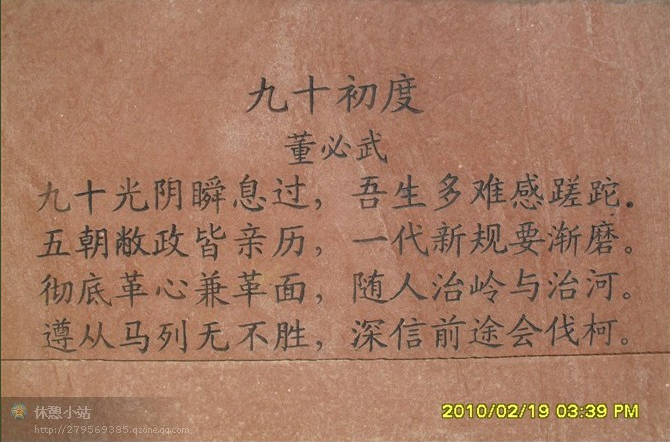 九十初度
董必武
九十光阴瞬息过，吾生多难感蹉跎.
五朝敝政皆亲历，一代新规要渐磨。
彻底革心兼革面，随人治岭与治河。
遵从马列无不胜，深信前途会伐柯。
休憩小站
http://279569385.qzone.qq.com
2010/02/19 03:39 PM